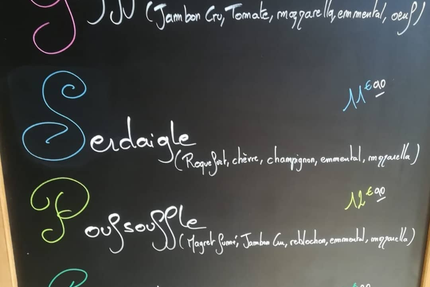 (Jambon Cru, Tomate, mozzarella, emmental, oeuf)
11€90
Serdaigle
(Roquefort, chèvre, champignon, emmental, mozzarella)
12€90
Poufsouffle
(Magret fumé, Jambon Cru, reblochon, emmental, mozzarella)